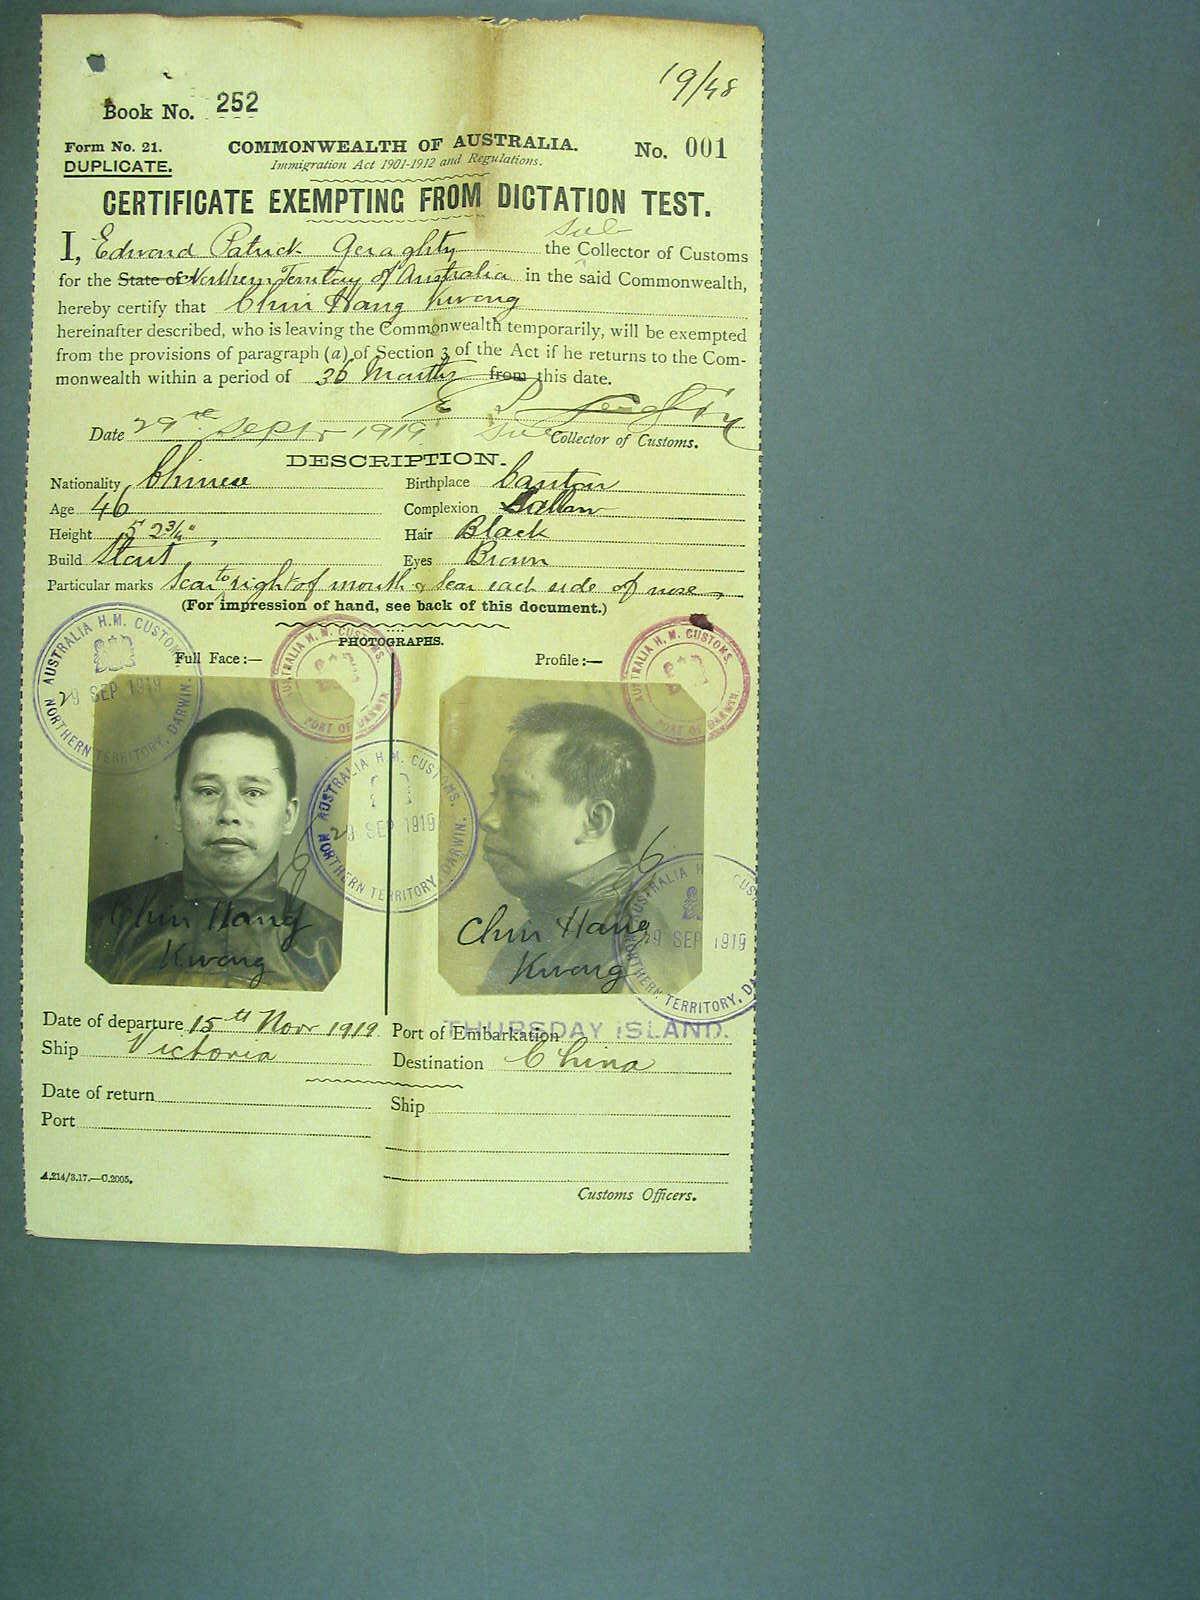 19/48
Book No. 252
Form No. 21.
DUPLICATE.
COMMONWEALTH OF AUSTRALIA.
Immigration Act 1901-1912 and Regulations.
No. 001
CERTIFICATE EXEMPTING FROM DICTATION TEST.
I, Edward Patrick Geraghty Sub the Collector of Customs
for the State of Northern Territory of Australia in the said Commonwealth,
hereby certify that Chin Hang Kwong
hereinafter described, who is leaving the Commonwealth temporarily, will be exempted
from the provisions of paragraph (a) of Section 3 of the Act if he returns to the Com-
monwealth within a period of 36 Months from this date.
Date 29th Septr 1919 Sub Collector of Customs.
DESCRIPTION.
Nationality Chinese
Birthplace Canton
Age 46
Complexion Sallow
Height 5 2¾"
Hair Black
Build Stout
Eyes Brown
Particular marks Scar to right of mouth & scar each side of nose
(For impression of hand, see back of this document.)
PHOTOGRAPHS.
Full Face:—
Profile:—
AUSTRALIA H.M. CUSTOMS.
29 SEP 1919
NORTHERN TERRITORY, DARWIN.
AUSTRALIA H.M. CUSTOMS.
PORT OF DARWIN
AUSTRALIA H.M. CUSTOMS.
PORT OF DARWIN
AUSTRALIA H.M. CUSTOMS.
29 SEP 1919
NORTHERN TERRITORY, DARWIN.
AUSTRALIA H. CUS
29 SEP 1919
NORTHERN TERRITORY, DA
Chin Hang
Kwong
Chin Hang
Kwong
Date of departure 15th Novr 1919
Port of Embarkation THURSDAY ISLAND.
Ship Victoria
Destination China
Date of return
Ship
Port
A.214/3.17.—C.2005.
Customs Officers.